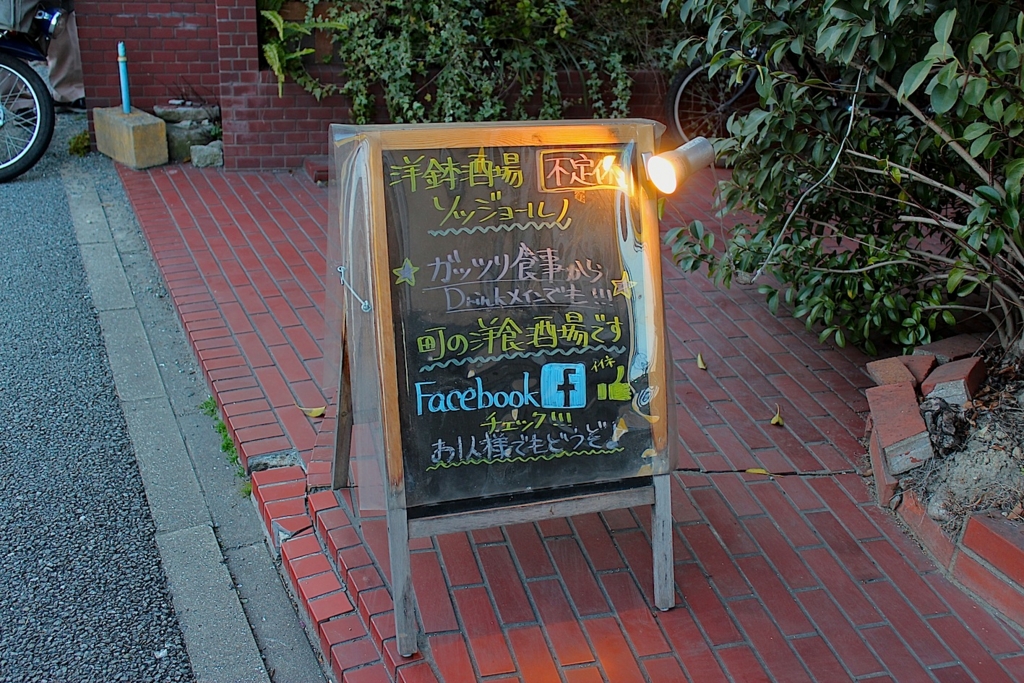 洋鉢酒場 不定休
ソッジョールノ
ガッツリ食事から
Drinkメインでも!!!
町の洋食酒場です
Facebook f イイネ
チェック!!!
お1人様でもどうぞ♪